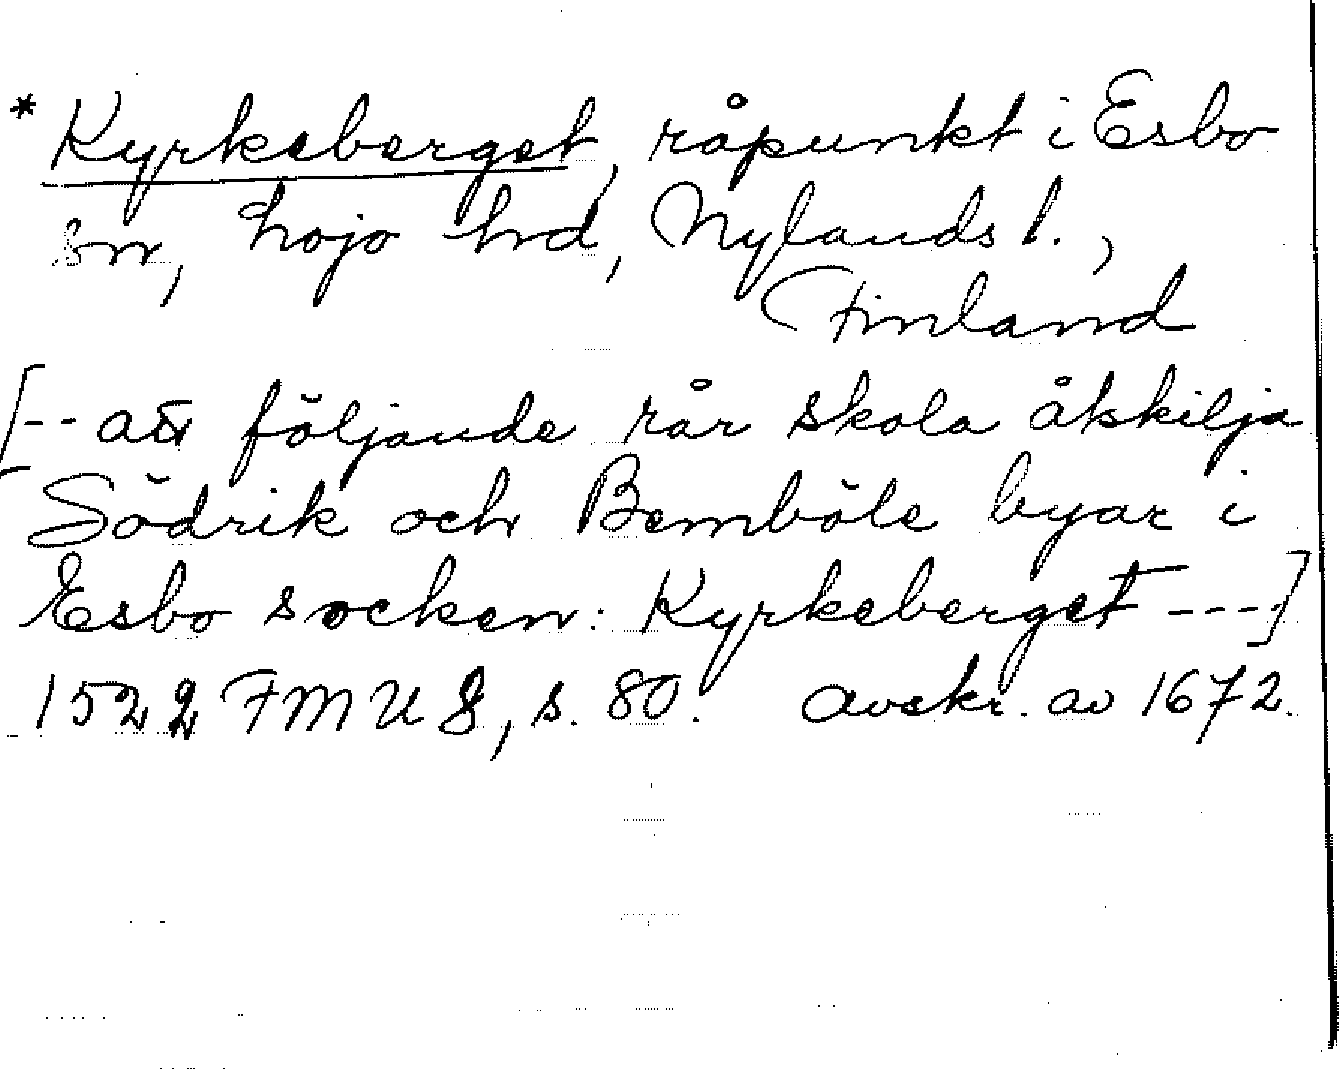 * Kyrkeberget, råpunkt i Esbo
sn, Lojo hrd, Nylands l.,
Finland
[-- att följande rår skola åtskilja
Södrik och Bemböle byar i
Esbo socken: Kyrkeberget ----]
1522 FMU 8, s. 80. Avskr. av 1672.